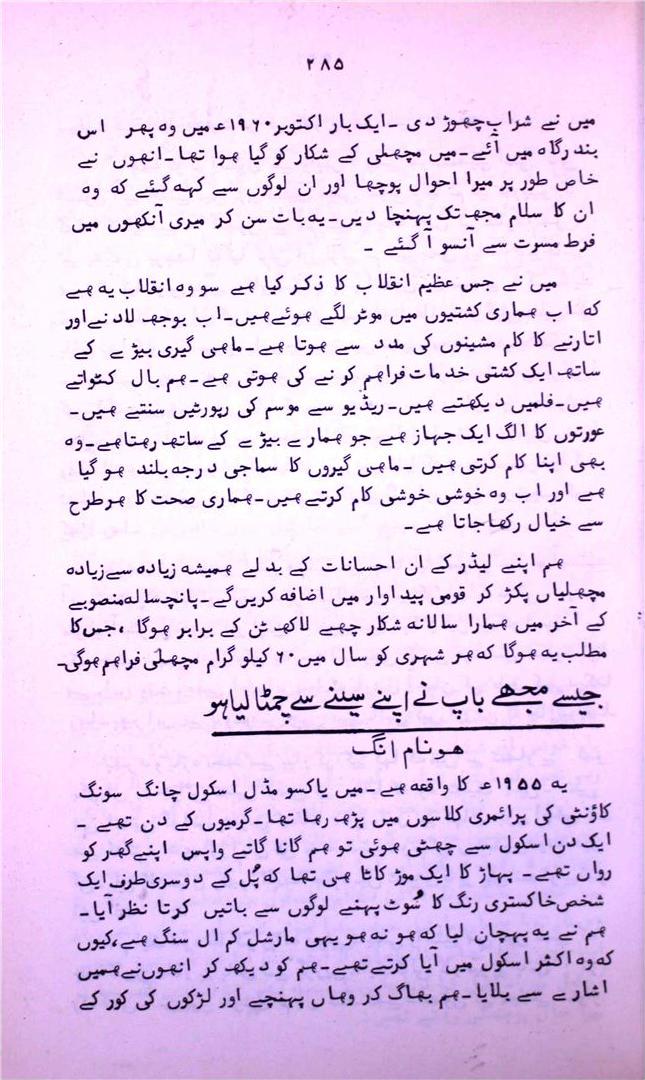 ۲۸۵
میں نے شراب چھوڑ دی ۔ ایک بار اکتوبر ۱۹۶۰ء میں وہ پھر اس
بندرگاہ میں آئے ۔ میں مچھلی کے شکار کو گیا ہوا تھا ۔ انھوں نے
خاص طور پر میرا احوال پوچھا اور ان لوگوں سے کہہ گئے کہ وہ
ان کا سلام مجھ تک پہنچا دیں ۔ یہ بات سن کر میری آنکھوں میں
فرط مسرت سے آنسو آ گئے ۔
میں نے جس عظیم انقلاب کا ذکر کیا ہے سو وہ انقلاب یہ ہے
کہ اب ہماری کشتیوں میں موٹر لگے ہوئے ہیں ۔ اب بوجھ لادنے اور
اتارنے کا کام مشینوں کی مدد سے ہوتا ہے ۔ ماہی گیری بیڑے کے
ساتھ ایک کشتی خدمات فراہم کرنے کی ہوتی ہے ۔ ہم بال کٹواتے
ہیں ۔ فلمیں دیکھتے ہیں ۔ ریڈیو سے موسم کی رپورٹیں سنتے ہیں ۔
عورتوں کا الگ ایک جہاز ہے جو ہمارے بیڑے کے ساتھ رہتا ہے ۔ وہ
بھی اپنا کام کرتی ہیں ۔ ماہی گیروں کا سماجی درجہ بلند ہو گیا
ہے اور اب وہ خوشی خوشی کام کرتے ہیں ۔ ہماری صحت کا ہر طرح
سے خیال رکھا جاتا ہے ۔
ہم اپنے لیڈر کے ان احسانات کے بدلے ہمیشہ زیادہ سے زیادہ
مچھلیاں پکڑ کر قومی پیداوار میں اضافہ کریں گے ۔ پانچ سالہ منصوبے
کے آخر میں ہمارا سالانہ شکار چھے لاکھ ٹن کے برابر ہوگا ، جس کا
مطلب یہ ہوگا کہ ہر شہری کو سال میں ۶۰ کیلو گرام مچھلی فراہم ہوگی ۔
جیسے مجھے باپ نے اپنے سینے سے چمٹا لیا ہو
ہونام انگ
یہ ۱۹۵۵ء کا واقعہ ہے ۔ میں یاکسو مڈل اسکول چانگ سونگ
کاؤنٹی کی پرائمری کلاسوں میں پڑھ رہا تھا ۔ گرمیوں کے دن تھے ۔
ایک دن اسکول سے چھٹی ہوئی تو ہم گانا گاتے واپس اپنے گھر کو
رواں تھے ۔ پہاڑ کا ایک موڑ کاٹا ہی تھا کہ پُل کے دوسری طرف ایک
شخص خاکستری رنگ کا سُوٹ پہنے لوگوں سے باتیں کرتا نظر آیا ۔
ہم نے یہ پہچان لیا کہ ہو نہ ہو یہی مارشل کم ال سنگ ہے ، کیوں
کہ وہ اکثر اسکول میں آیا کرتے تھے ۔ ہم کو دیکھ کر انھوں نے ہمیں
اشارے سے بلایا ۔ ہم بھاگ کر وہاں پہنچے اور لڑکوں کی کور کے